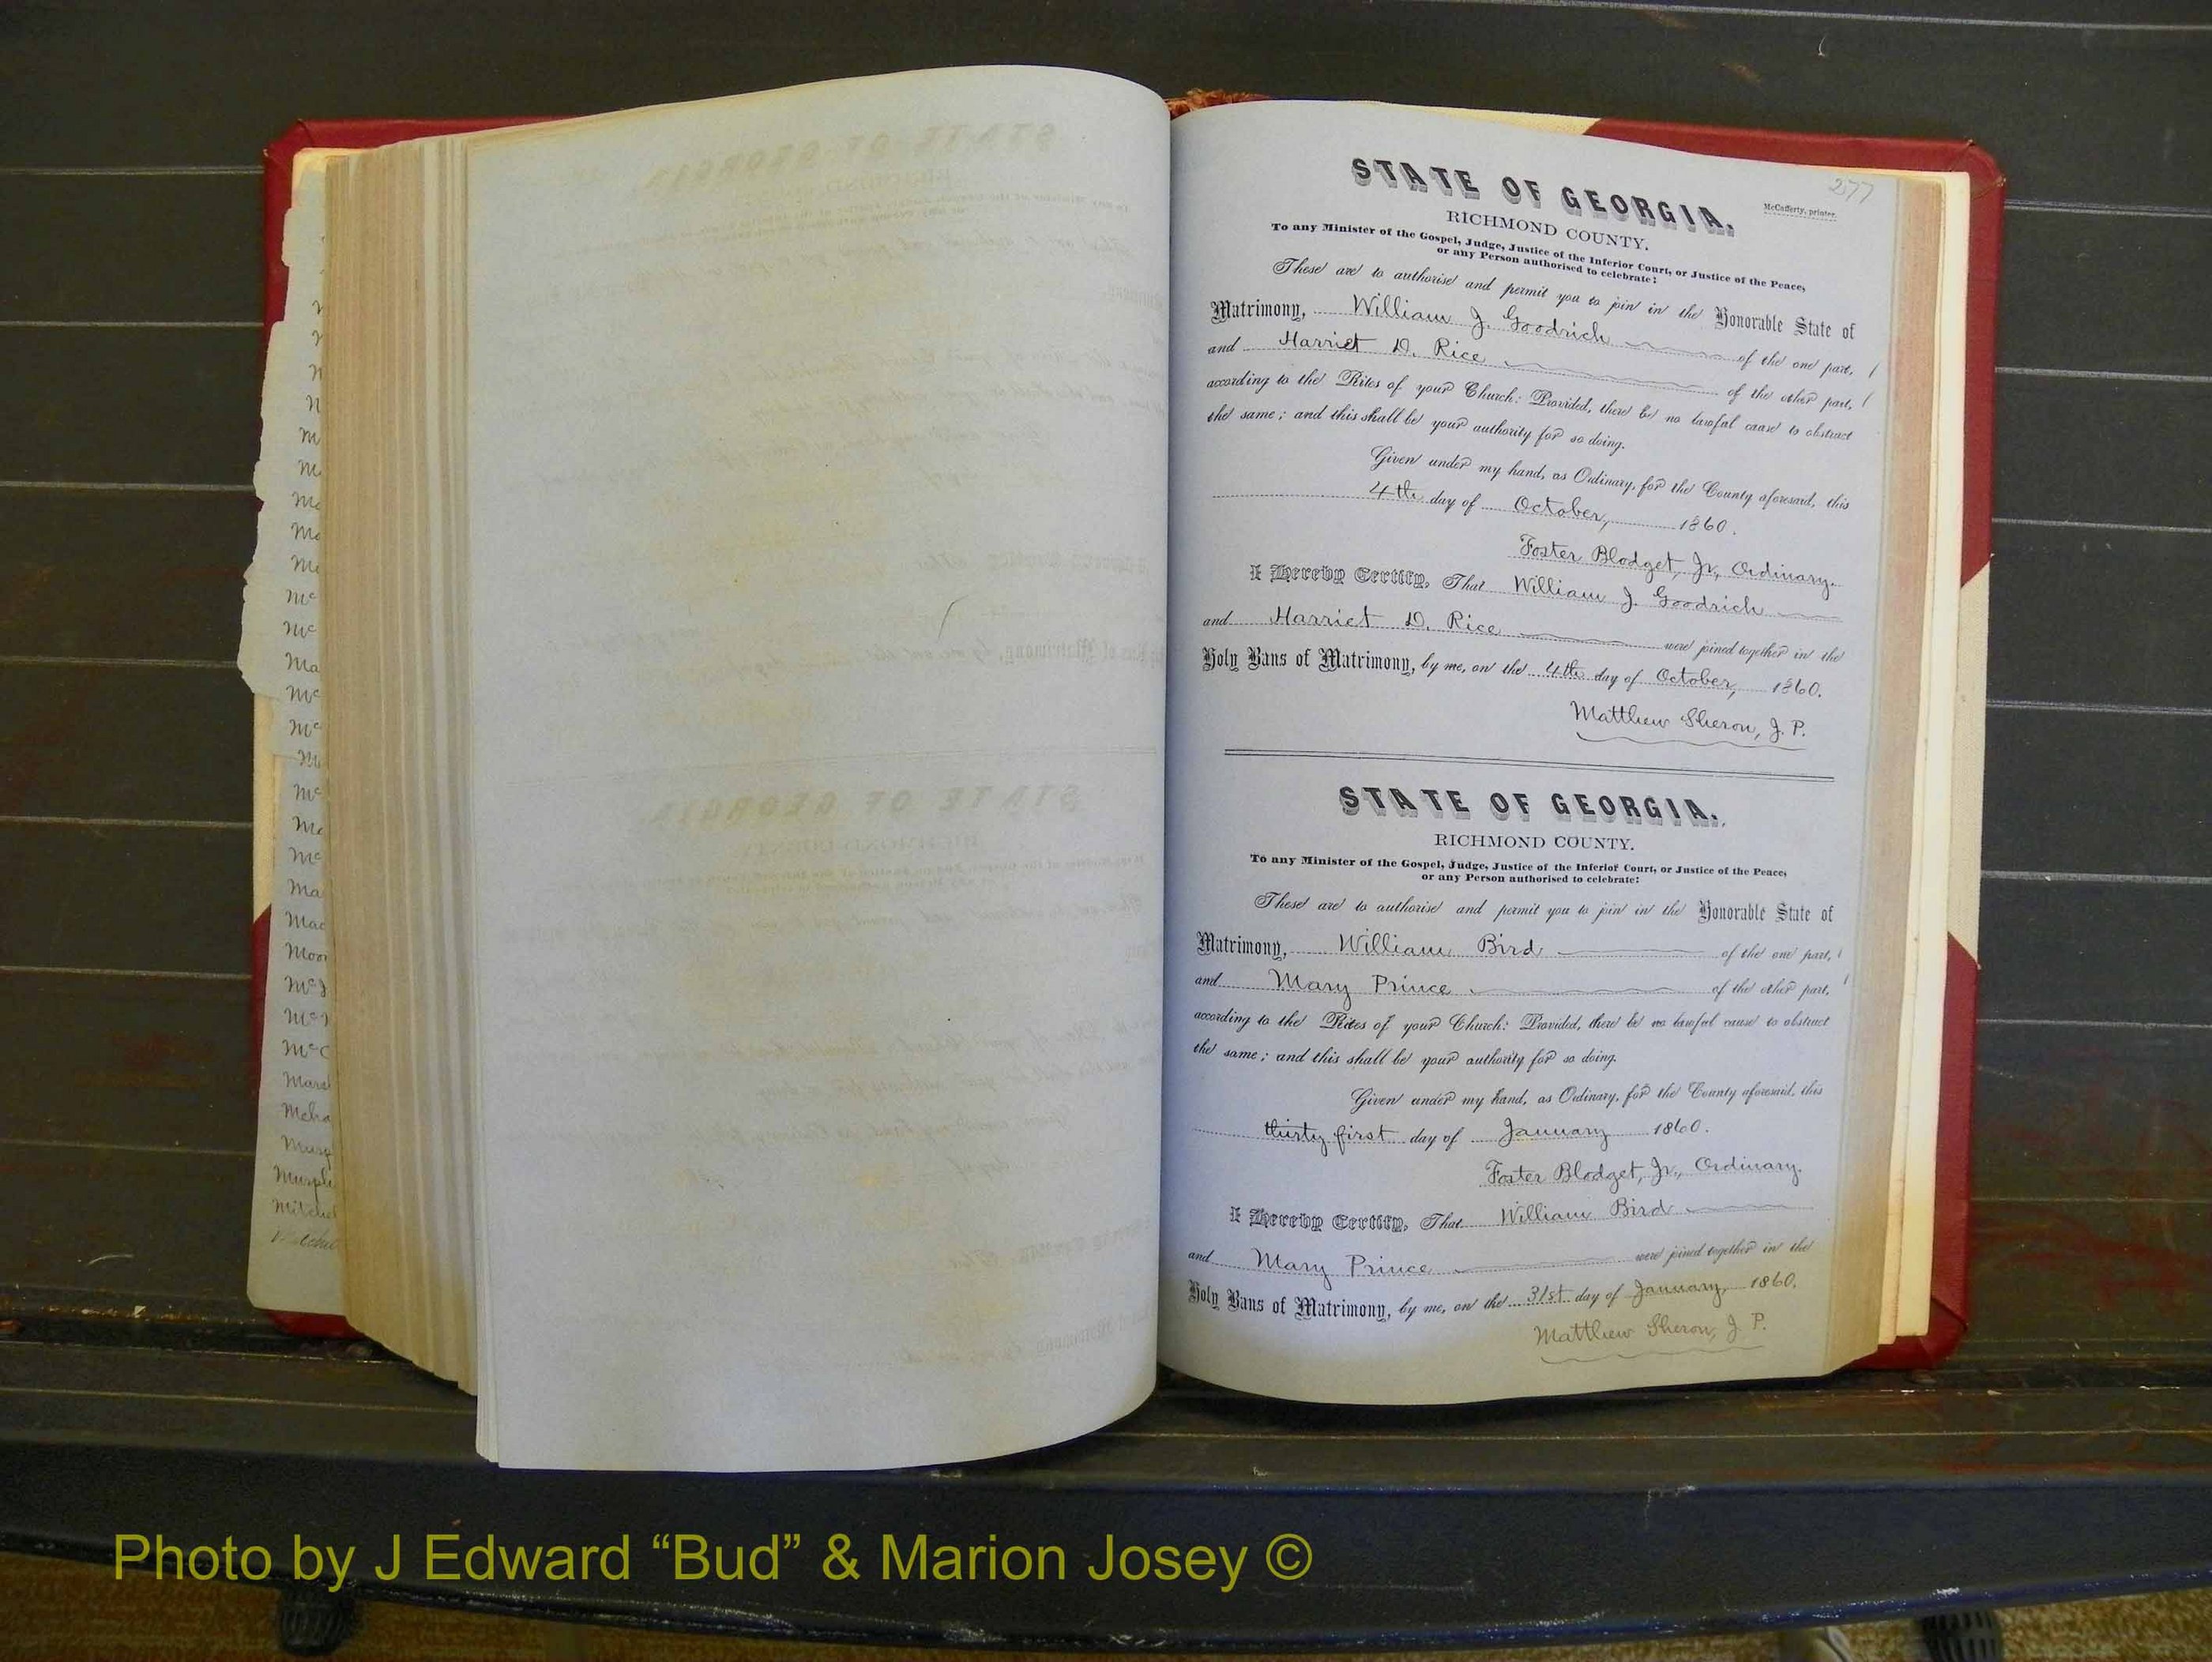 277
STATE OF GEORGIA.
McCafferty, printer.
RICHMOND COUNTY.
To any Minister of the Gospel, Judge, Justice of the Inferior Court, or Justice of the Peace,
or any Person authorised to celebrate:
These are to authorise and permit you to join in the Honorable State of
Matrimony, William J. Goodrich of the one part,
and Harriet D. Rice of the other part,
according to the Rites of your Church: Provided, there be no lawful cause to obstruct
the same; and this shall be your authority for so doing.
Given under my hand, as Ordinary, for the County aforesaid, this
4th day of October, 1860.
Foster Blodget, Jr., Ordinary.
I Hereby Certify, That William J. Goodrich
and Harriet D. Rice were joined together in the
Holy Bans of Matrimony, by me, on the 4th day of October, 1860.
Matthew Sheron, J. P.
STATE OF GEORGIA.
RICHMOND COUNTY.
To any Minister of the Gospel, Judge, Justice of the Inferior Court, or Justice of the Peace,
or any Person authorised to celebrate:
These are to authorise and permit you to join in the Honorable State of
Matrimony, William Bird of the one part,
and Mary Prince of the other part,
according to the Rites of your Church: Provided, there be no lawful cause to obstruct
the same; and this shall be your authority for so doing.
Given under my hand, as Ordinary, for the County aforesaid, this
thirty first day of January 1860.
Foster Blodget, Jr., Ordinary.
I Hereby Certify, That William Bird
and Mary Prince were joined together in the
Holy Bans of Matrimony, by me, on the 31st day of January, 1860.
Matthew Sheron, J. P.
Photo by J Edward “Bud” & Marion Josey ©